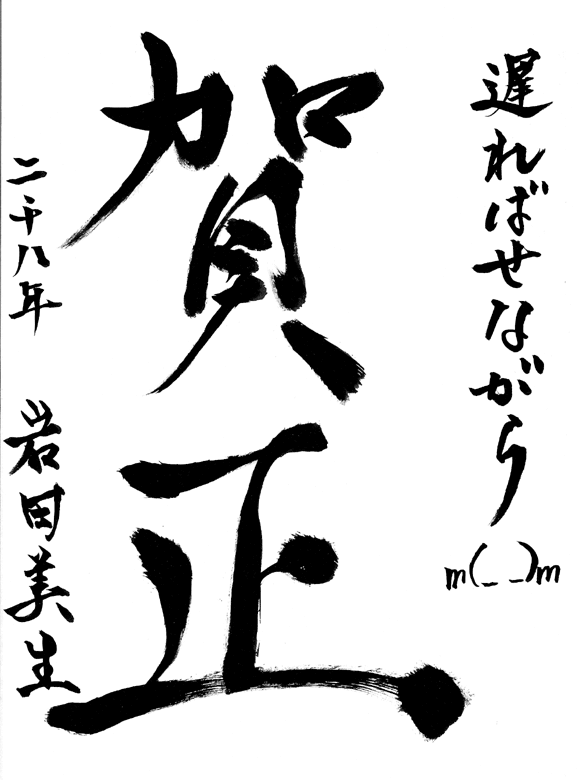 遅ればせながら m(_ _)m
賀正
二千八年 岩田美生